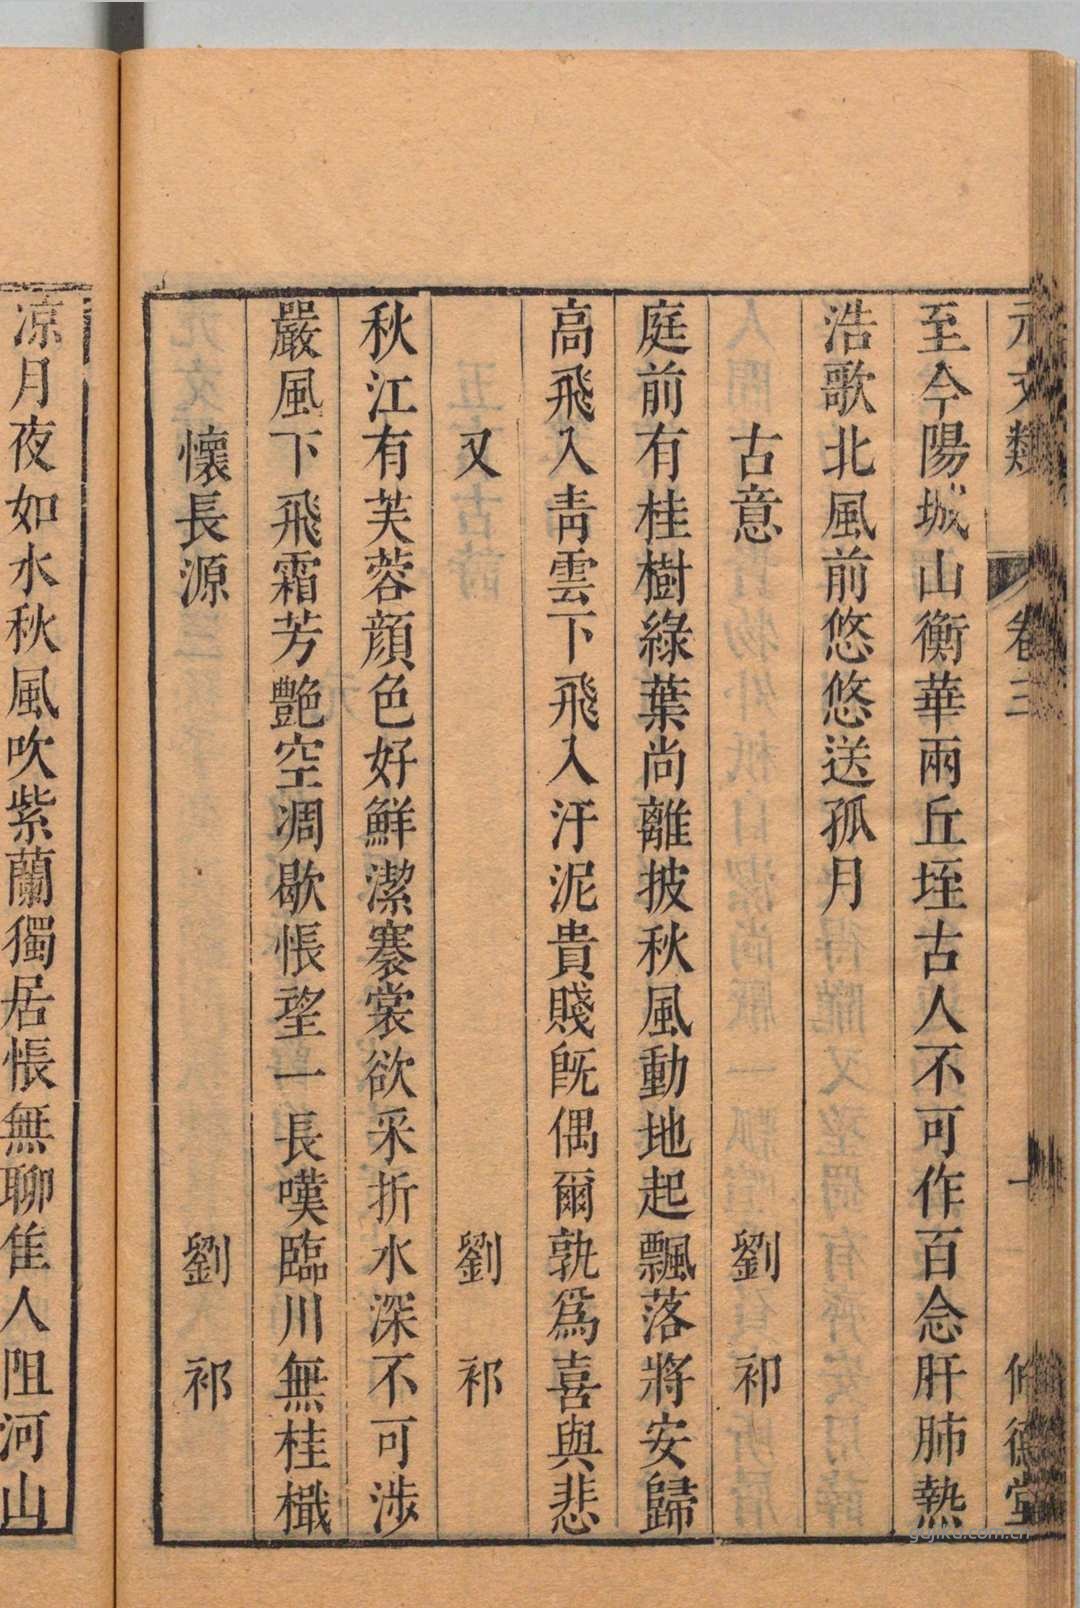 元文類 卷三 一 脩德堂
至今陽城山衡華兩丘垤古人不可作百念肝肺熱
浩歌北風前悠悠送孤月
古意 劉 祁
庭前有桂樹綠葉尚離披秋風動地起飄落將安歸
高飛入青雲下飛入汙泥貴賤旣偶爾孰爲喜與悲
又 劉 祁
秋江有芙蓉顔色好鮮潔褰裳欲采折水深不可涉
嚴風下飛霜芳艷空凋歇悵望一長嘆臨川無桂檝
懷長源 劉 祁
凉月夜如水秋風吹紫蘭獨居悵無聊隹人阻河山